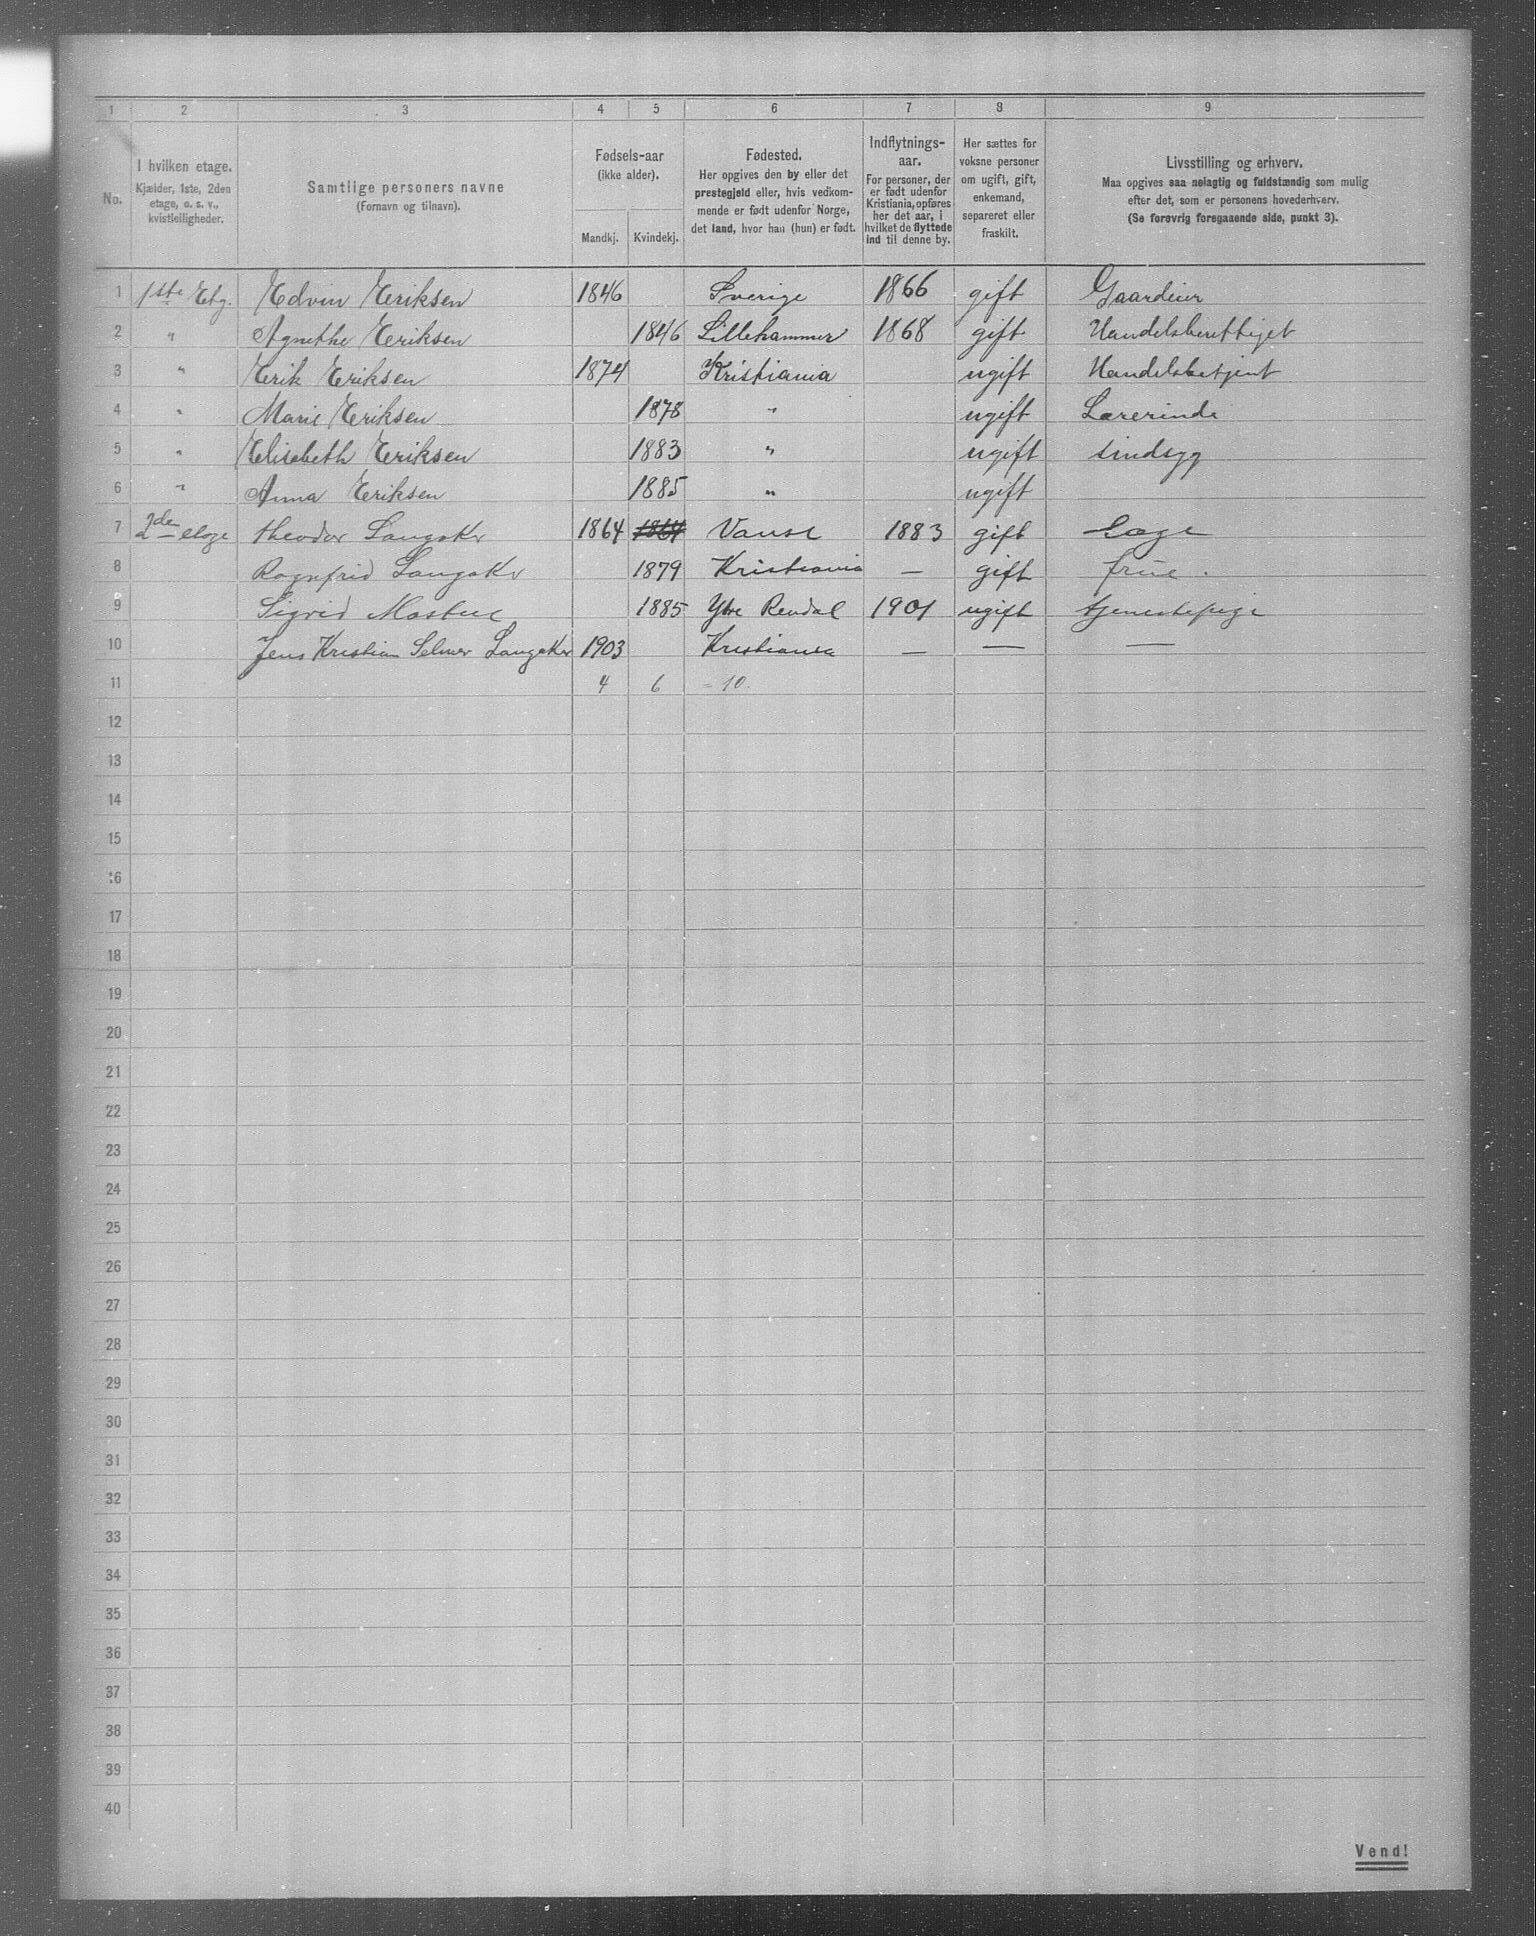 1 2 3 4 5 6 7 8 9
No.
I hvilken etage.
Kjælder, 1ste, 2den
etage, o. s. v.,
kvistleiligheder.
Samtlige personers navne
(Fornavn og tilnavn).
Fødsels-aar
(ikke alder).
Mandkj. Kvindekj.
Fødested.
Her opgives den by eller det
prestegjeld eller, hvis vedkom-
mende er født udenfor Norge,
det land, hvor han (hun) er født.
Indflytnings-
aar.
For personer, der
er født udenfor
Kristiania, opføres
her det aar, i
hvilket de flyttede
ind til denne by.
Her sættes for
voksne personer
om ugift, gift,
enkemand,
separeret eller
fraskilt.
Livsstilling og erhverv.
Maa opgives saa nøiagtig og fuldstændig som mulig
efter det, som er personens hovederhverv.
(Se forøvrig foregaaende side, punkt 3).
1 1ste Etg. Edvin Eriksen 1846 Sverige 1866 gift Gaardeier
2 " Agnethe Eriksen 1846 Lillehammer 1868 gift Handelsberettiget
3 " Erik Eriksen 1874 Kristiania ugift Handelsbetjent
4 " Marie Eriksen 1878 " ugift Lærerinde
5 " Elisabeth Eriksen 1883 " ugift sindsyg
6 " Anna Eriksen 1885 " ugift
7 2den etage Theodor Langaker 1864 1864 Vanse 1883 gift Læge
8 Ragnfrid Langaker 1879 Kristiania — gift frue.
9 Sigrid 1885 Ytre Rendal 1901 ugift tjenestepige
10 Jens Kristian Selmer Langaker 1903 Kristiania — — —
11 4 6 = 10.
12
13
14
15
16
17
18
19
20
21
22
23
24
25
26
27
28
29
30
31
32
33
34
35
36
37
38
39
40
Vend!